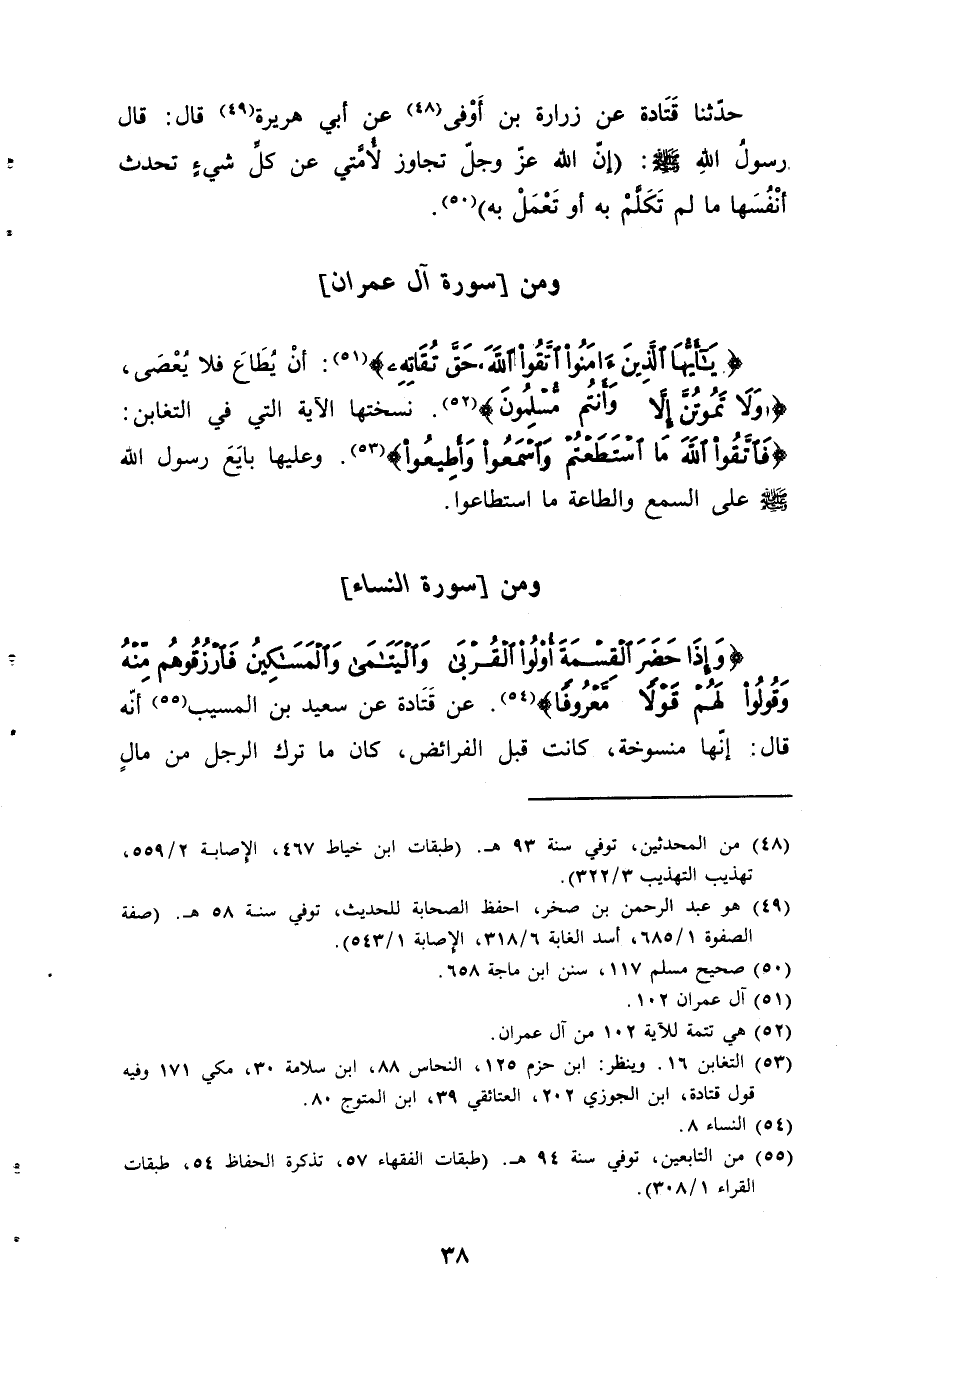 حدّثنا قَتَادة عن زرارة بن أَوْفى(٤٨) عن أبي هريرة(٤٩) قال: قال
رسولُ اللهِ ﷺ: (إنّ الله عزّ وجلّ تجاوز لأُمَّتي عن كلِّ شيءٍ تحدث
أنْفُسَها ما لم تَكَلَّمْ به أو تَعْمَلْ به)(٥٠).
ومن [سورة آل عمران]
﴿يَٰٓأَيُّهَا ٱلَّذِينَ ءَامَنُوا۟ ٱتَّقُوا۟ ٱللَّهَ حَقَّ تُقَاتِهِۦ﴾(٥١): أنْ يُطَاعَ فلا يُعْصَى،
﴿وَلَا تَمُوتُنَّ إِلَّا وَأَنتُم مُّسْلِمُونَ﴾(٥٢). نسختها الآية التي في التغابن:
﴿فَٱتَّقُوا۟ ٱللَّهَ مَا ٱسْتَطَعْتُمْ وَٱسْمَعُوا۟ وَأَطِيعُوا۟﴾(٥٣). وعليها بايَعَ رسول الله
ﷺ على السمع والطاعة ما استطاعوا.
ومن [سورة النساء]
﴿وَإِذَا حَضَرَ ٱلْقِسْمَةَ أُو۟لُوا۟ ٱلْقُرْبَىٰ وَٱلْيَتَٰمَىٰ وَٱلْمَسَٰكِينُ فَٱرْزُقُوهُم مِّنْهُ
وَقُولُوا۟ لَهُمْ قَوْلًا مَّعْرُوفًا﴾(٥٤). عن قَتَادة عن سعيد بن المسيب(٥٥) أنّه
قال: إنّها منسوخة، كانت قبل الفرائض، كان ما ترك الرجل من مالٍ
(٤٨) من المحدثين، توفي سنة ٩٣ هـ. (طبقات ابن خياط ٤٦٧، الإصابة ٥٥٩/٢،
تهذيب التهذيب ٣٢٢/٣).
(٤٩) هو عبد الرحمن بن صخر، احفظ الصحابة للحديث، توفي سنة ٥٨ هـ. (صفة
الصفوة ٦٨٥/١، أسد الغابة ٣١٨/٦، الإصابة ٥٤٣/١).
(٥٠) صحيح مسلم ١١٧، سنن ابن ماجة ٦٥٨.
(٥١) آل عمران ١٠٢.
(٥٢) هي تتمة للآية ١٠٢ من آل عمران.
(٥٣) التغابن ١٦. وينظر: ابن حزم ١٢٥، النحاس ٨٨، ابن سلامة ٣٠، مكي ١٧١ وفيه
قول قتادة، ابن الجوزي ٢٠٢، العتائقي ٣٩، ابن المتوج ٨٠.
(٥٤) النساء ٨.
(٥٥) من التابعين، توفي سنة ٩٤ هـ. (طبقات الفقهاء ٥٧، تذكرة الحفاظ ٥٤، طبقات
القراء ٣٠٨/١).
٣٨